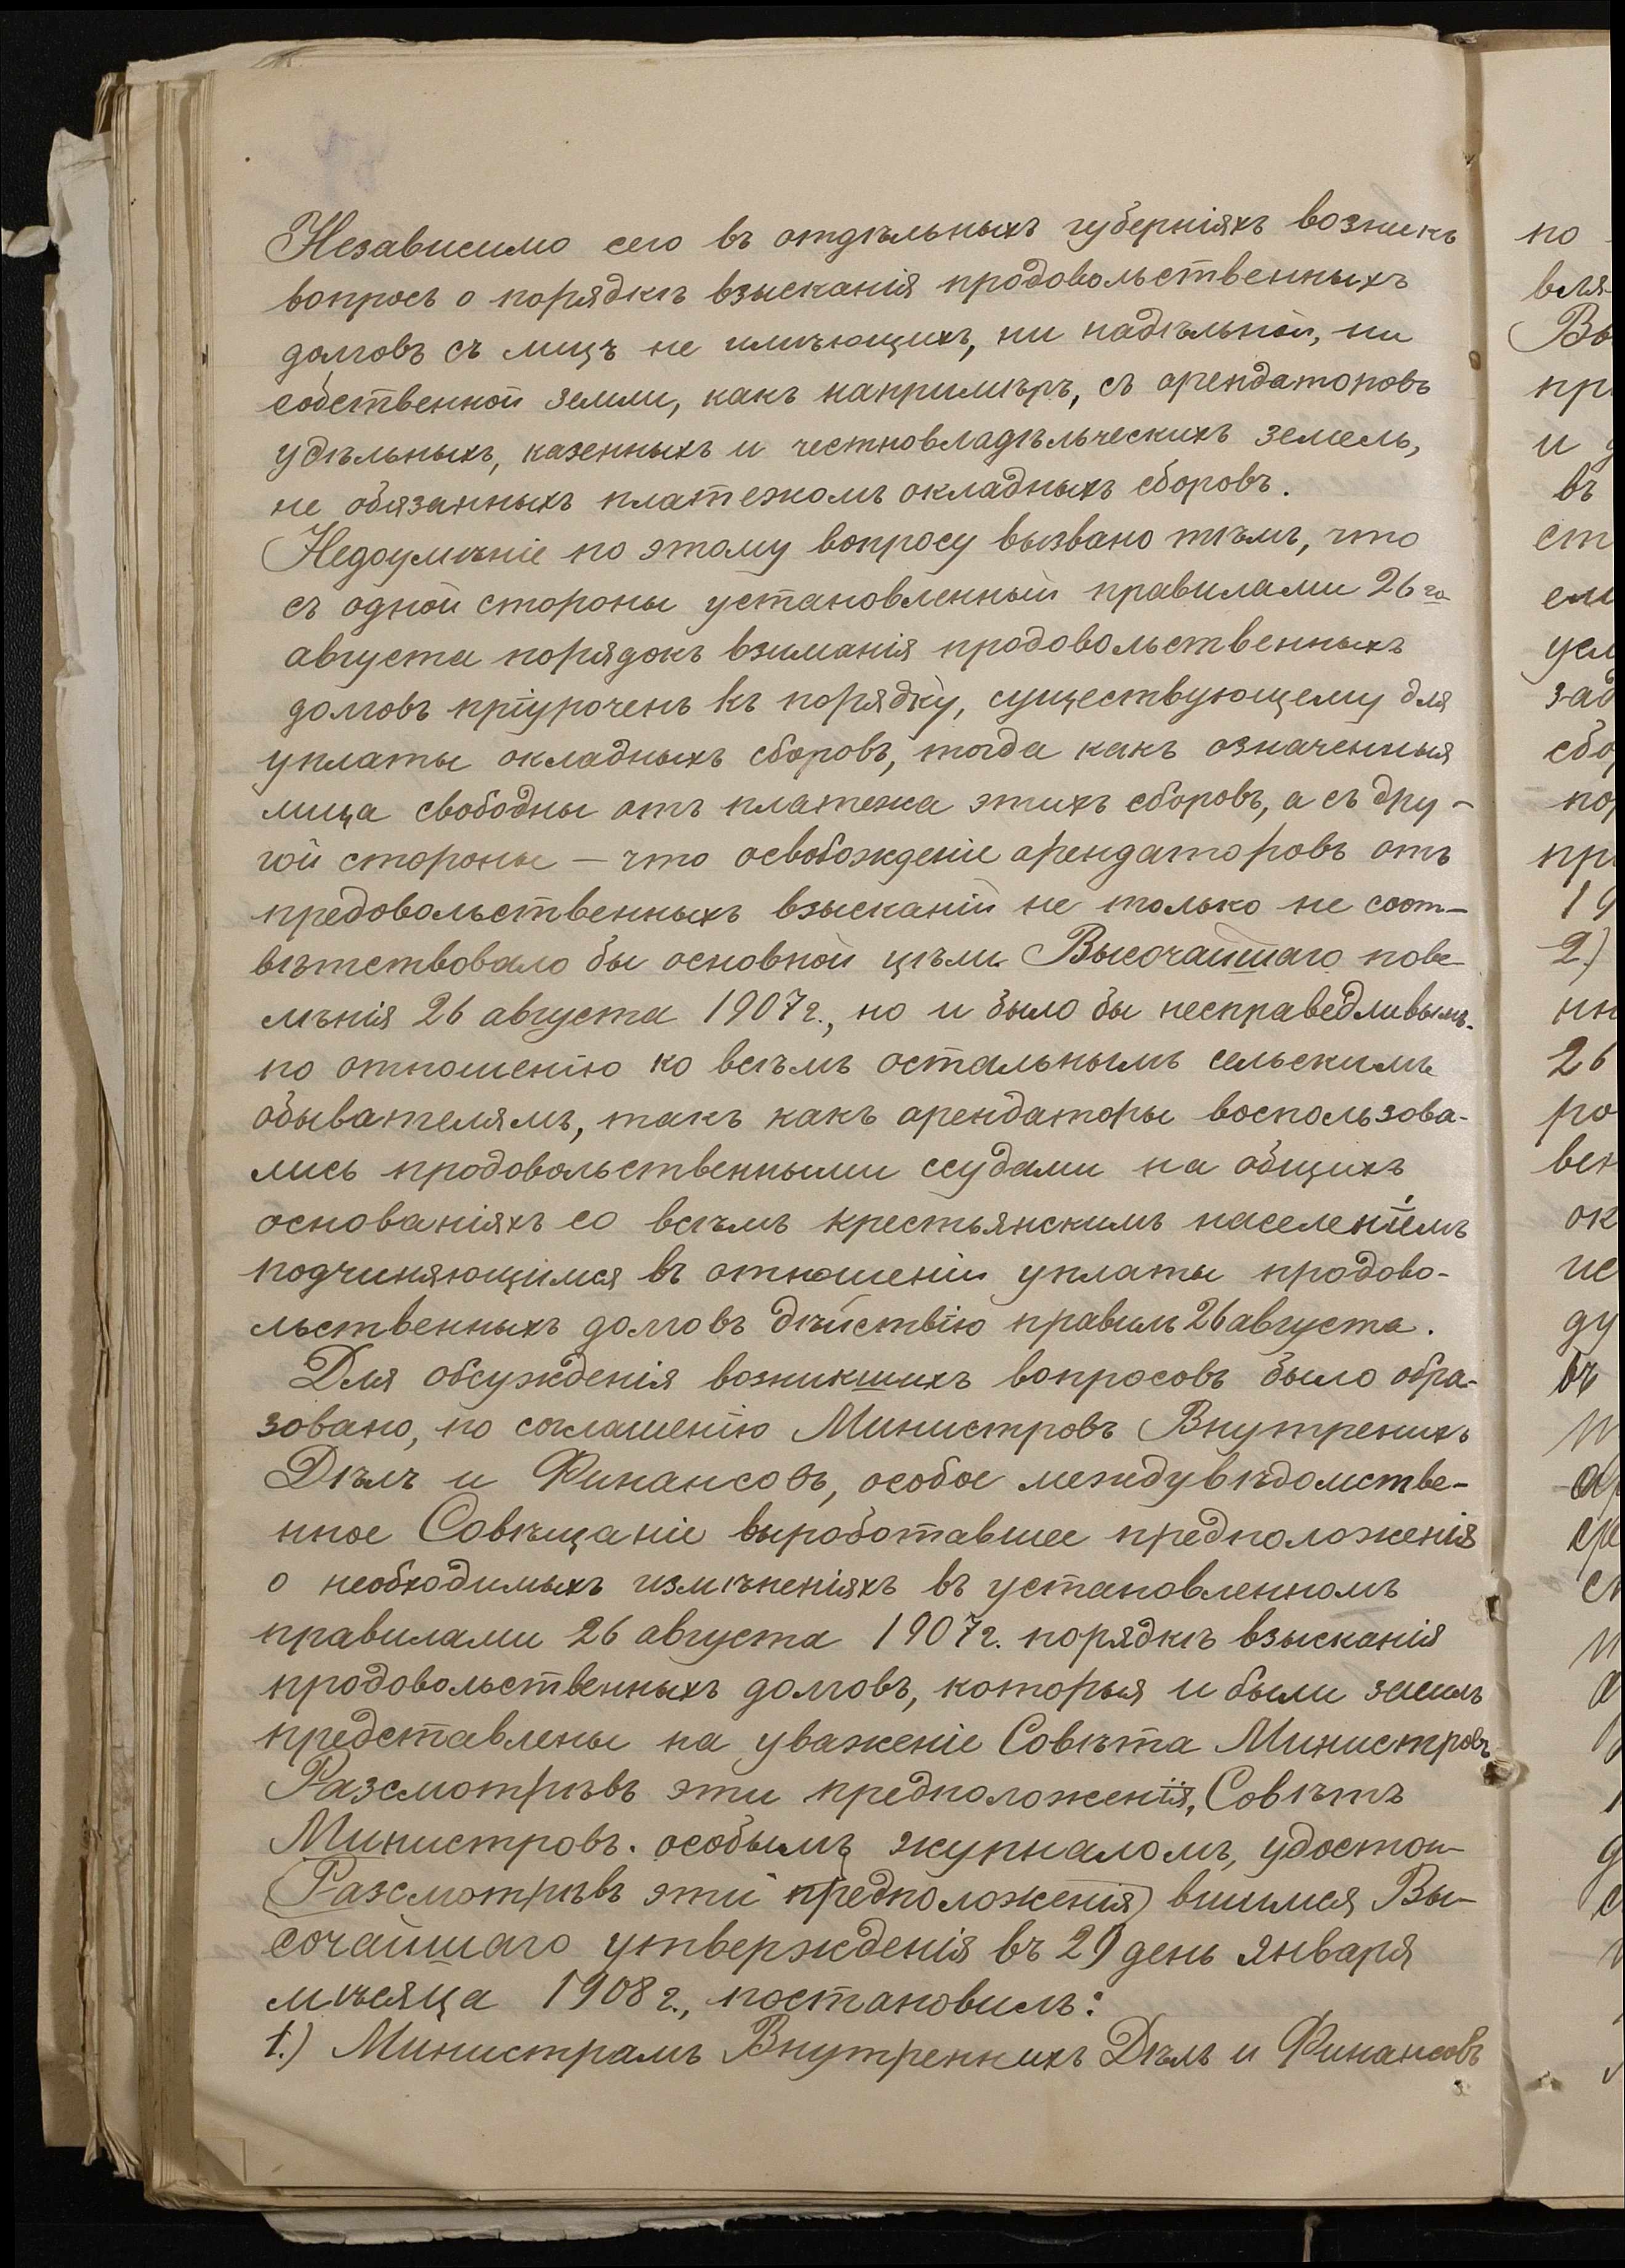 Независимо сего въ отдѣльныхъ губернiяхъ возникъ
вопросъ о порядкѣ взысканiя продовольственныхъ
долговъ съ лицъ не имѣющихъ, ни надѣльной, ни
собственной земли, какъ напримѣръ, съ арендаторовъ
удѣльныхъ, казенныхъ и честновладѣльческихъ земель,
не обязанныхъ платежомъ окладныхъ сборовъ.
Недоумѣнiе по этому вопросу вызвано тѣмъ, что
съ одной стороны установленный правилами 26го
августа порядокъ взиманiя продовольственныхъ
долговъ прiуроченъ къ порядку, существующему для
уплаты окладныхъ сборовъ, тогда какъ означенныя
лица свободны отъ платежа этихъ сборовъ, а съ дру-
гой стороны – что освобожденiе арендаторовъ отъ
предовольственныхъ взысканiй не только не соот-
вѣтствовало бы основной цѣли Высочайшаго пове-
лѣнiя 26 августа 1907 г., но и было бы несправедливымъ
по отношенiю ко всѣмъ остальнымъ сельскимъ
обывателямъ, такъ какъ арендаторы воспользова-
лись продовольственными ссудами на общихъ
основанiяхъ со всѣмъ крестьянскимъ населенiемъ
подчиняющимся въ отношенiи уплаты продово-
льственныхъ долговъ дѣйствiю правилъ 26 августа.
Для обсужденiя возникшихъ вопросовъ было обра-
зовано, по соглашенiю Министровъ Внутреннихъ
Дѣлъ и Финансовъ, особое междувѣдомстве-
нное Совѣщанiе выработавшее предположенiя
о необходимыхъ измѣненiяхъ въ установленномъ
правилами 26 августа 1907 г. порядкѣ взысканiя
продовольственныхъ долговъ, которыя и были засимъ
представлены на уваженiе Совѣта Министровъ
Разсмотрѣвъ эти предположенiя, Совѣтъ
Министровъ. особымъ журналомъ, удостои-
(Разсмотрѣвъ эти предположенiя) вшимся Вы-
сочайшаго утвержденiя въ 29 день января
мѣсяца 1908 г., постановилъ:
1.) Министрамъ Внутреннихъ Дѣлъ и Финансовъ